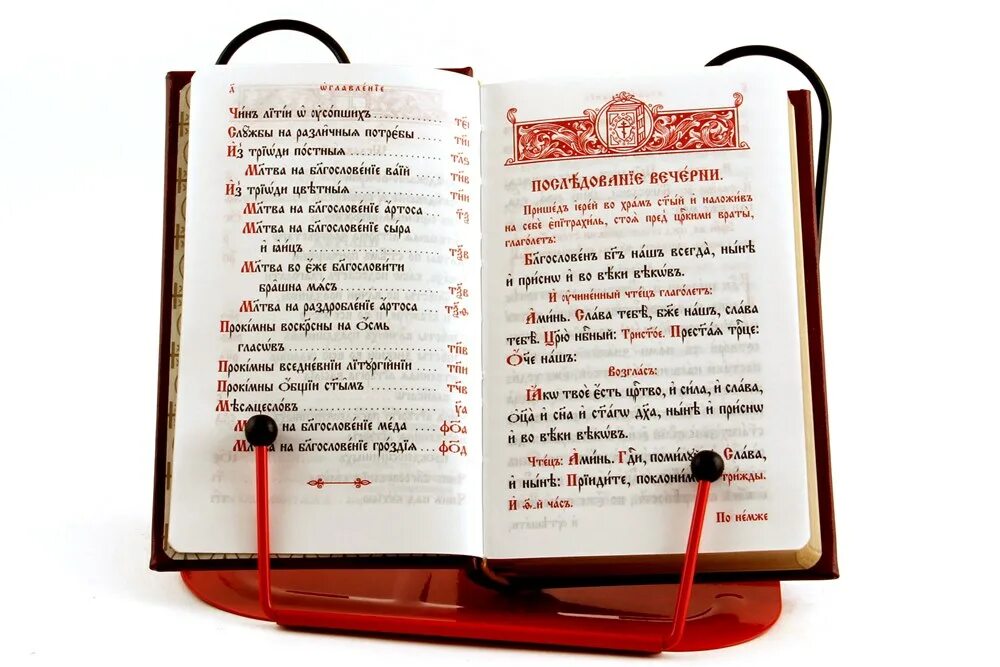 ѡ҆главле́нїе
Чи́нъ лїті́и ѡ҆ ᲂу҆со́пшихъ
Слꙋ́жбы на разли̑чныѧ потрє́бы
И҆з̾ трїѡ́ди по́стныѧ
Мл҃тва на бл҃гослове́нїе ва́їй
И҆з̾ трїѡ́ди цвѣ́тныѧ
Мл҃тва на бл҃гослове́нїе а҆́ртоса
Мл҃тва на бл҃гослове́нїе сы́ра
и҆ ꙗ҆и́цъ
Мл҃тва во є҆́же бл҃гослови́ти
бра̑шна мѧ́съ
Мл҃тва на раздробле́нїе а҆́ртоса
Прокі́мны воскрⷭ҇ны на ѻ҆́смь
гласѡ́въ
Прокі́мны вседне́внїи лїтꙋргі́йнїи
Прокі́мны ѻ҆́бщїи ст҃ы̑мъ
Мѣсѧцесло́въ
на бл҃гослове́нїе ме́да
на бл҃гослове́нїе гро́здїѧ
ПОСЛѢ́ДОВАНЇЕ ВЕЧЕ́РНИ.
Прише́дъ і҆ере́й во хра́мъ ст҃ы́й и҆ наложи́въ
на себѐ є҆пїтрахи́ль, стоѧ̀ пред̾ цр҃кими враты̀,
глаго́летъ:
Бл҃гослове́нъ бг҃ъ на́шъ всегда̀, ны́нѣ
и҆ при́снѡ и҆ во вѣ́ки вѣкѡ́въ.
И҆ ᲂу҆чине́нный чте́цъ глаго́летъ:
А҆ми́нь. Сла́ва тебѣ̀, бж҃е на́шъ, сла́ва
тебѣ̀. Цр҃ю̀ нбⷭ҇ный: Трист҃о́е. Прест҃а́ѧ трⷪ҇це:
Ѻ҆́ч҃е на́шъ:
Возгла́съ:
Ꙗ҆́кѡ твоѐ є҆́сть црⷭ҇тво, и҆ си́ла, и҆ сла́ва,
ѻ҆ц҃а̀ и҆ сн҃а и҆ ст҃а́гѡ дх҃а, ны́нѣ и҆ при́снѡ
и҆ во вѣ́ки вѣкѡ́въ.
Чте́цъ: А҆ми́нь. Гдⷭ҇и, Сла́ва,
и҆ ны́нѣ: Прїиди́те, три́жды.
И҆ ѳ҃.й ча́съ.
По не́мже